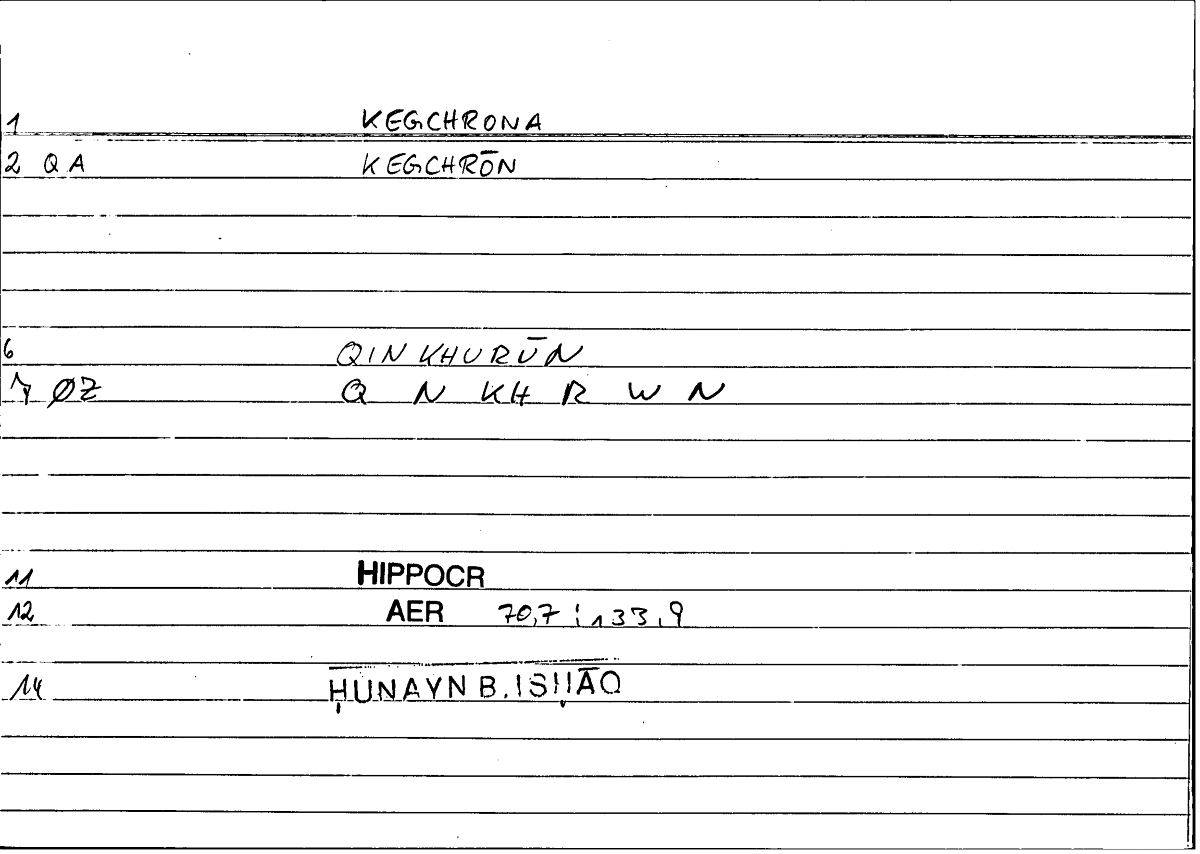 1 KEGCHRONA
2 QA KEGCHRŌN
6 QIN KHURŪN
7 ØZ Q N KH R W N
11 HIPPOCR
12 AER 70,7 ; 133,9
14 ḤUNAYN B. ISḤĀQ